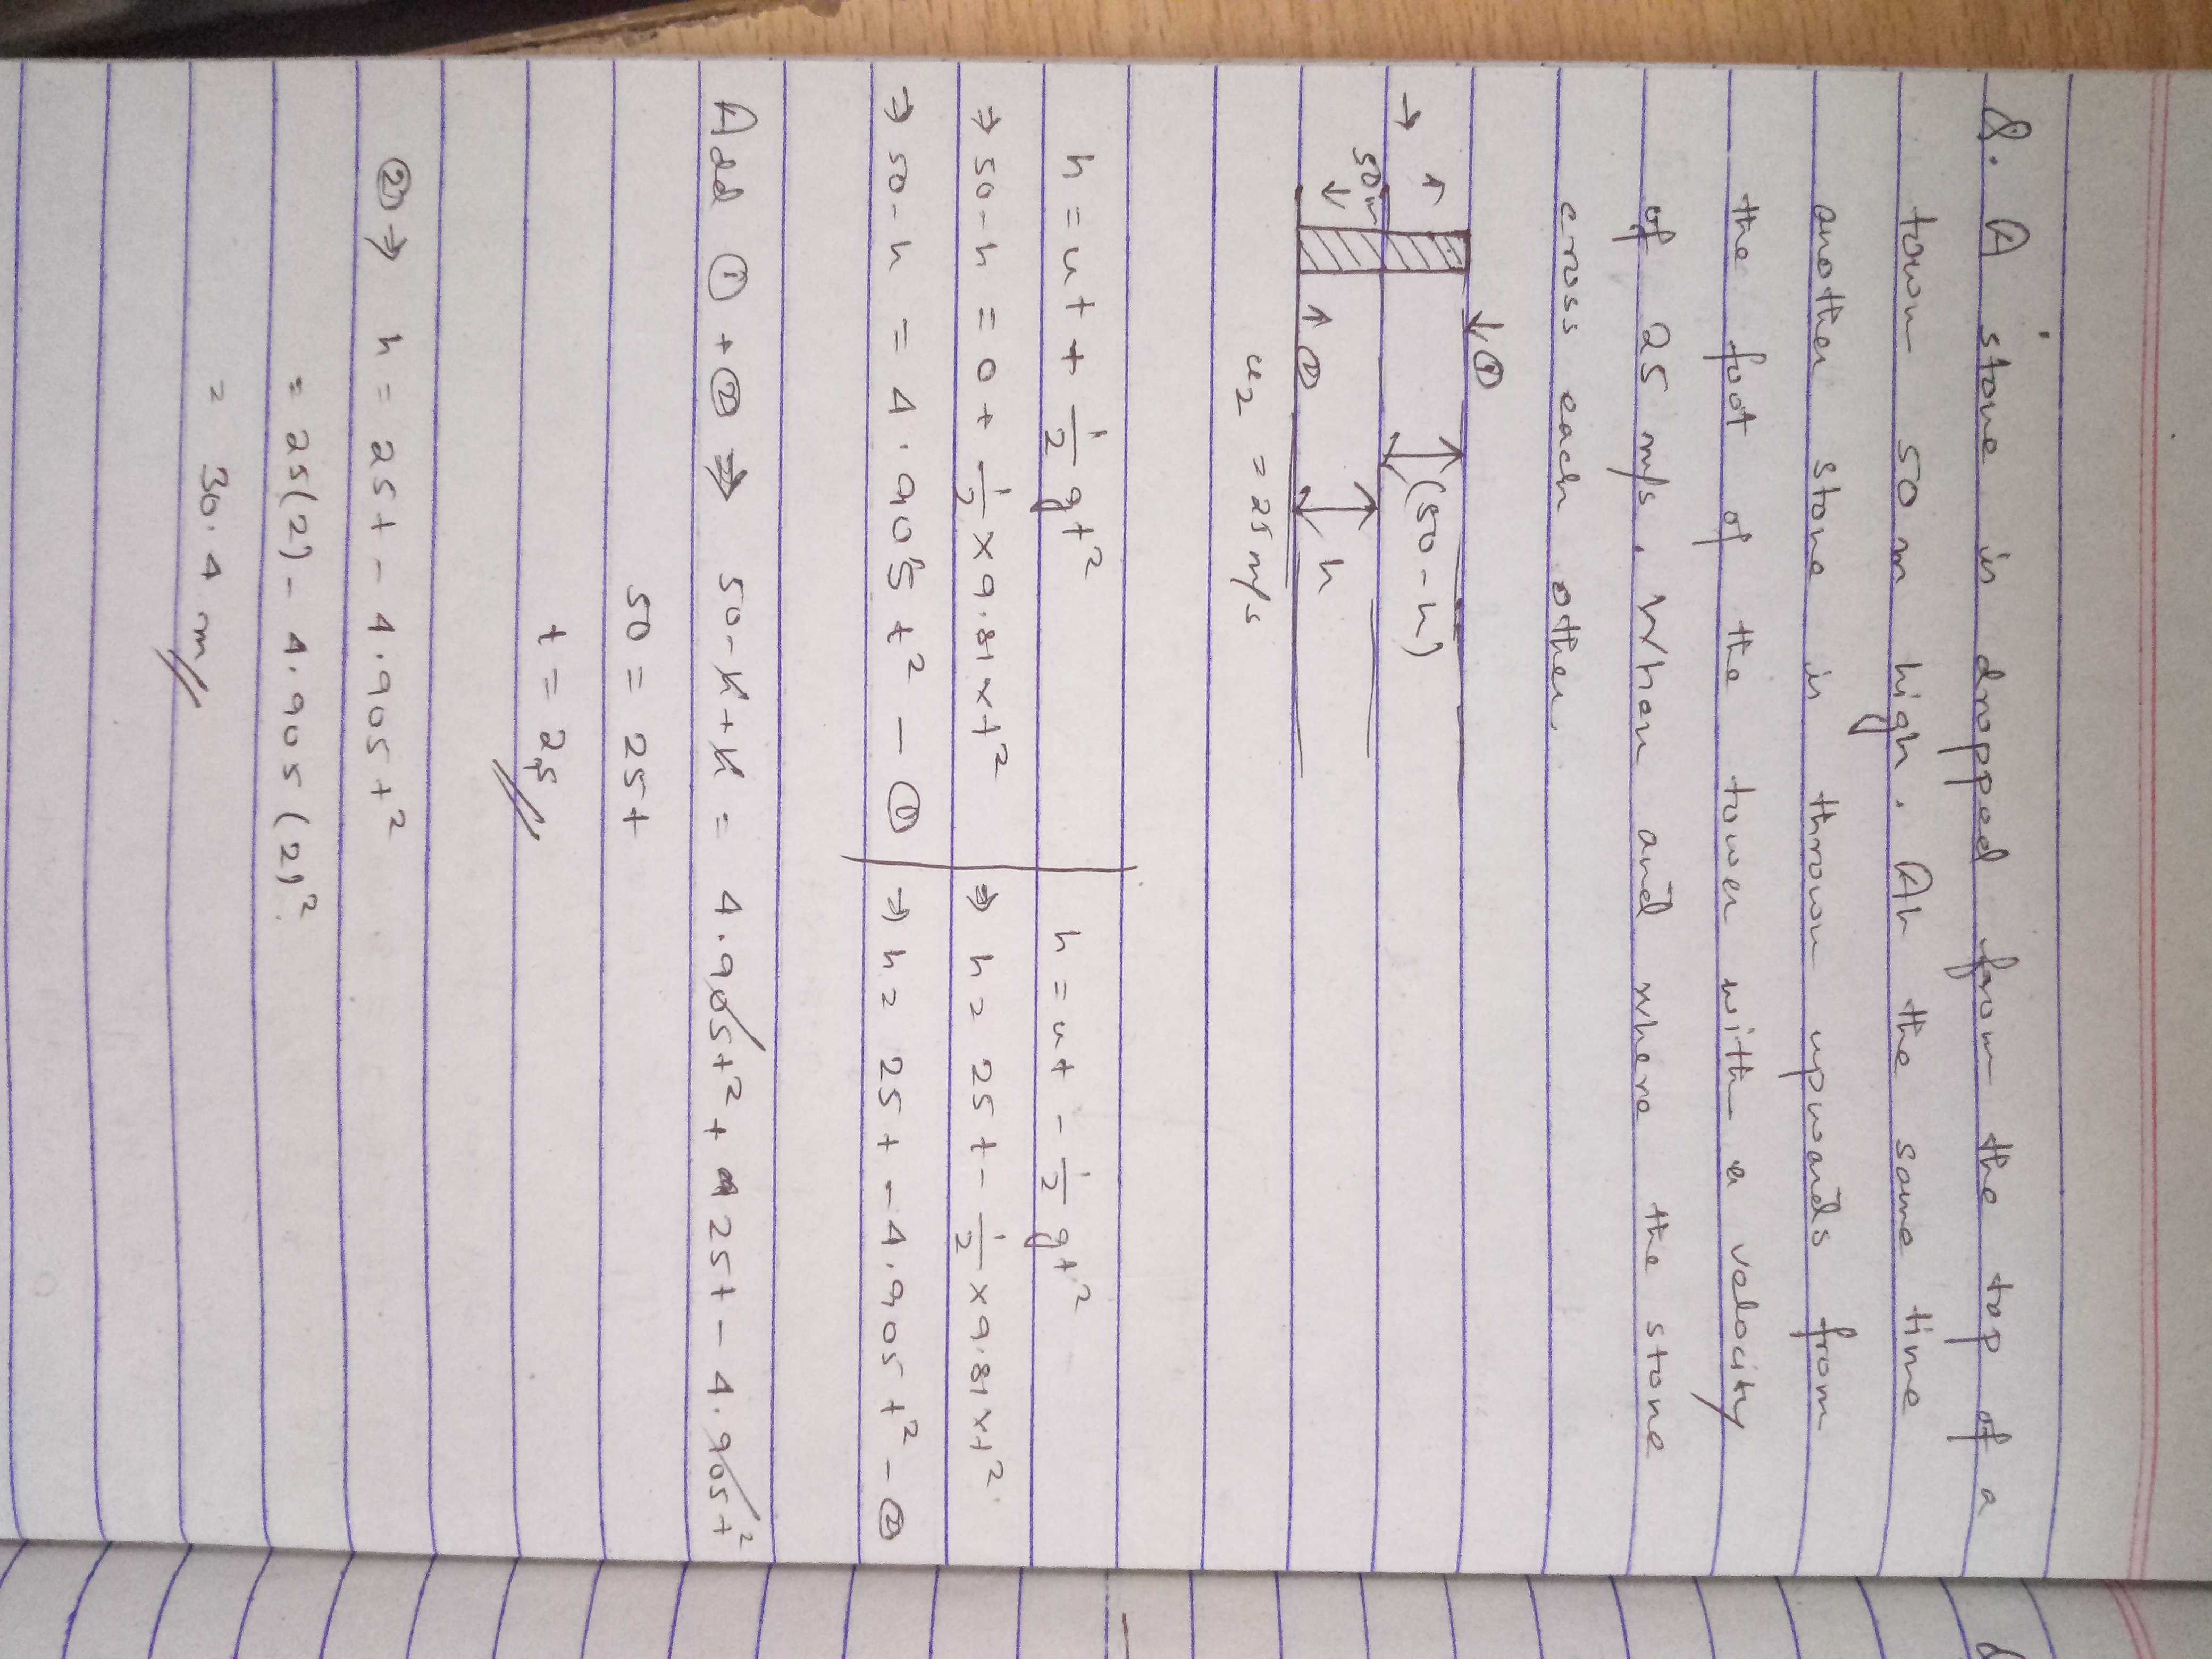 Q. A stone is dropped from the top of a
town 50 m high. At the same time
another stone is thrown upwards from
the foot of the tower with a velocity
of 25 m/s. When and where the stone
cross each other.
↓ ①
(50-h)
→ 50m
h
↑ ②
u₂ = 25 m/s
h = ut + 1/2 gt² | h = ut - 1/2 gt²
⇒ 50-h = 0 + 1/2 × 9.81 × t² | ⇒ h = 25t - 1/2 × 9.81 × t²
⇒ 50-h = 4.905 t² - ① | ⇒ h = 25t - 4.905 t² - ②
Add ① + ② ⇒ 50-h+h = 4.905t² + 25t - 4.905t²
50 = 25t
t = 2s
② ⇒ h = 25t - 4.905t²
= 25(2) - 4.905 (2)²
= 30.4 m